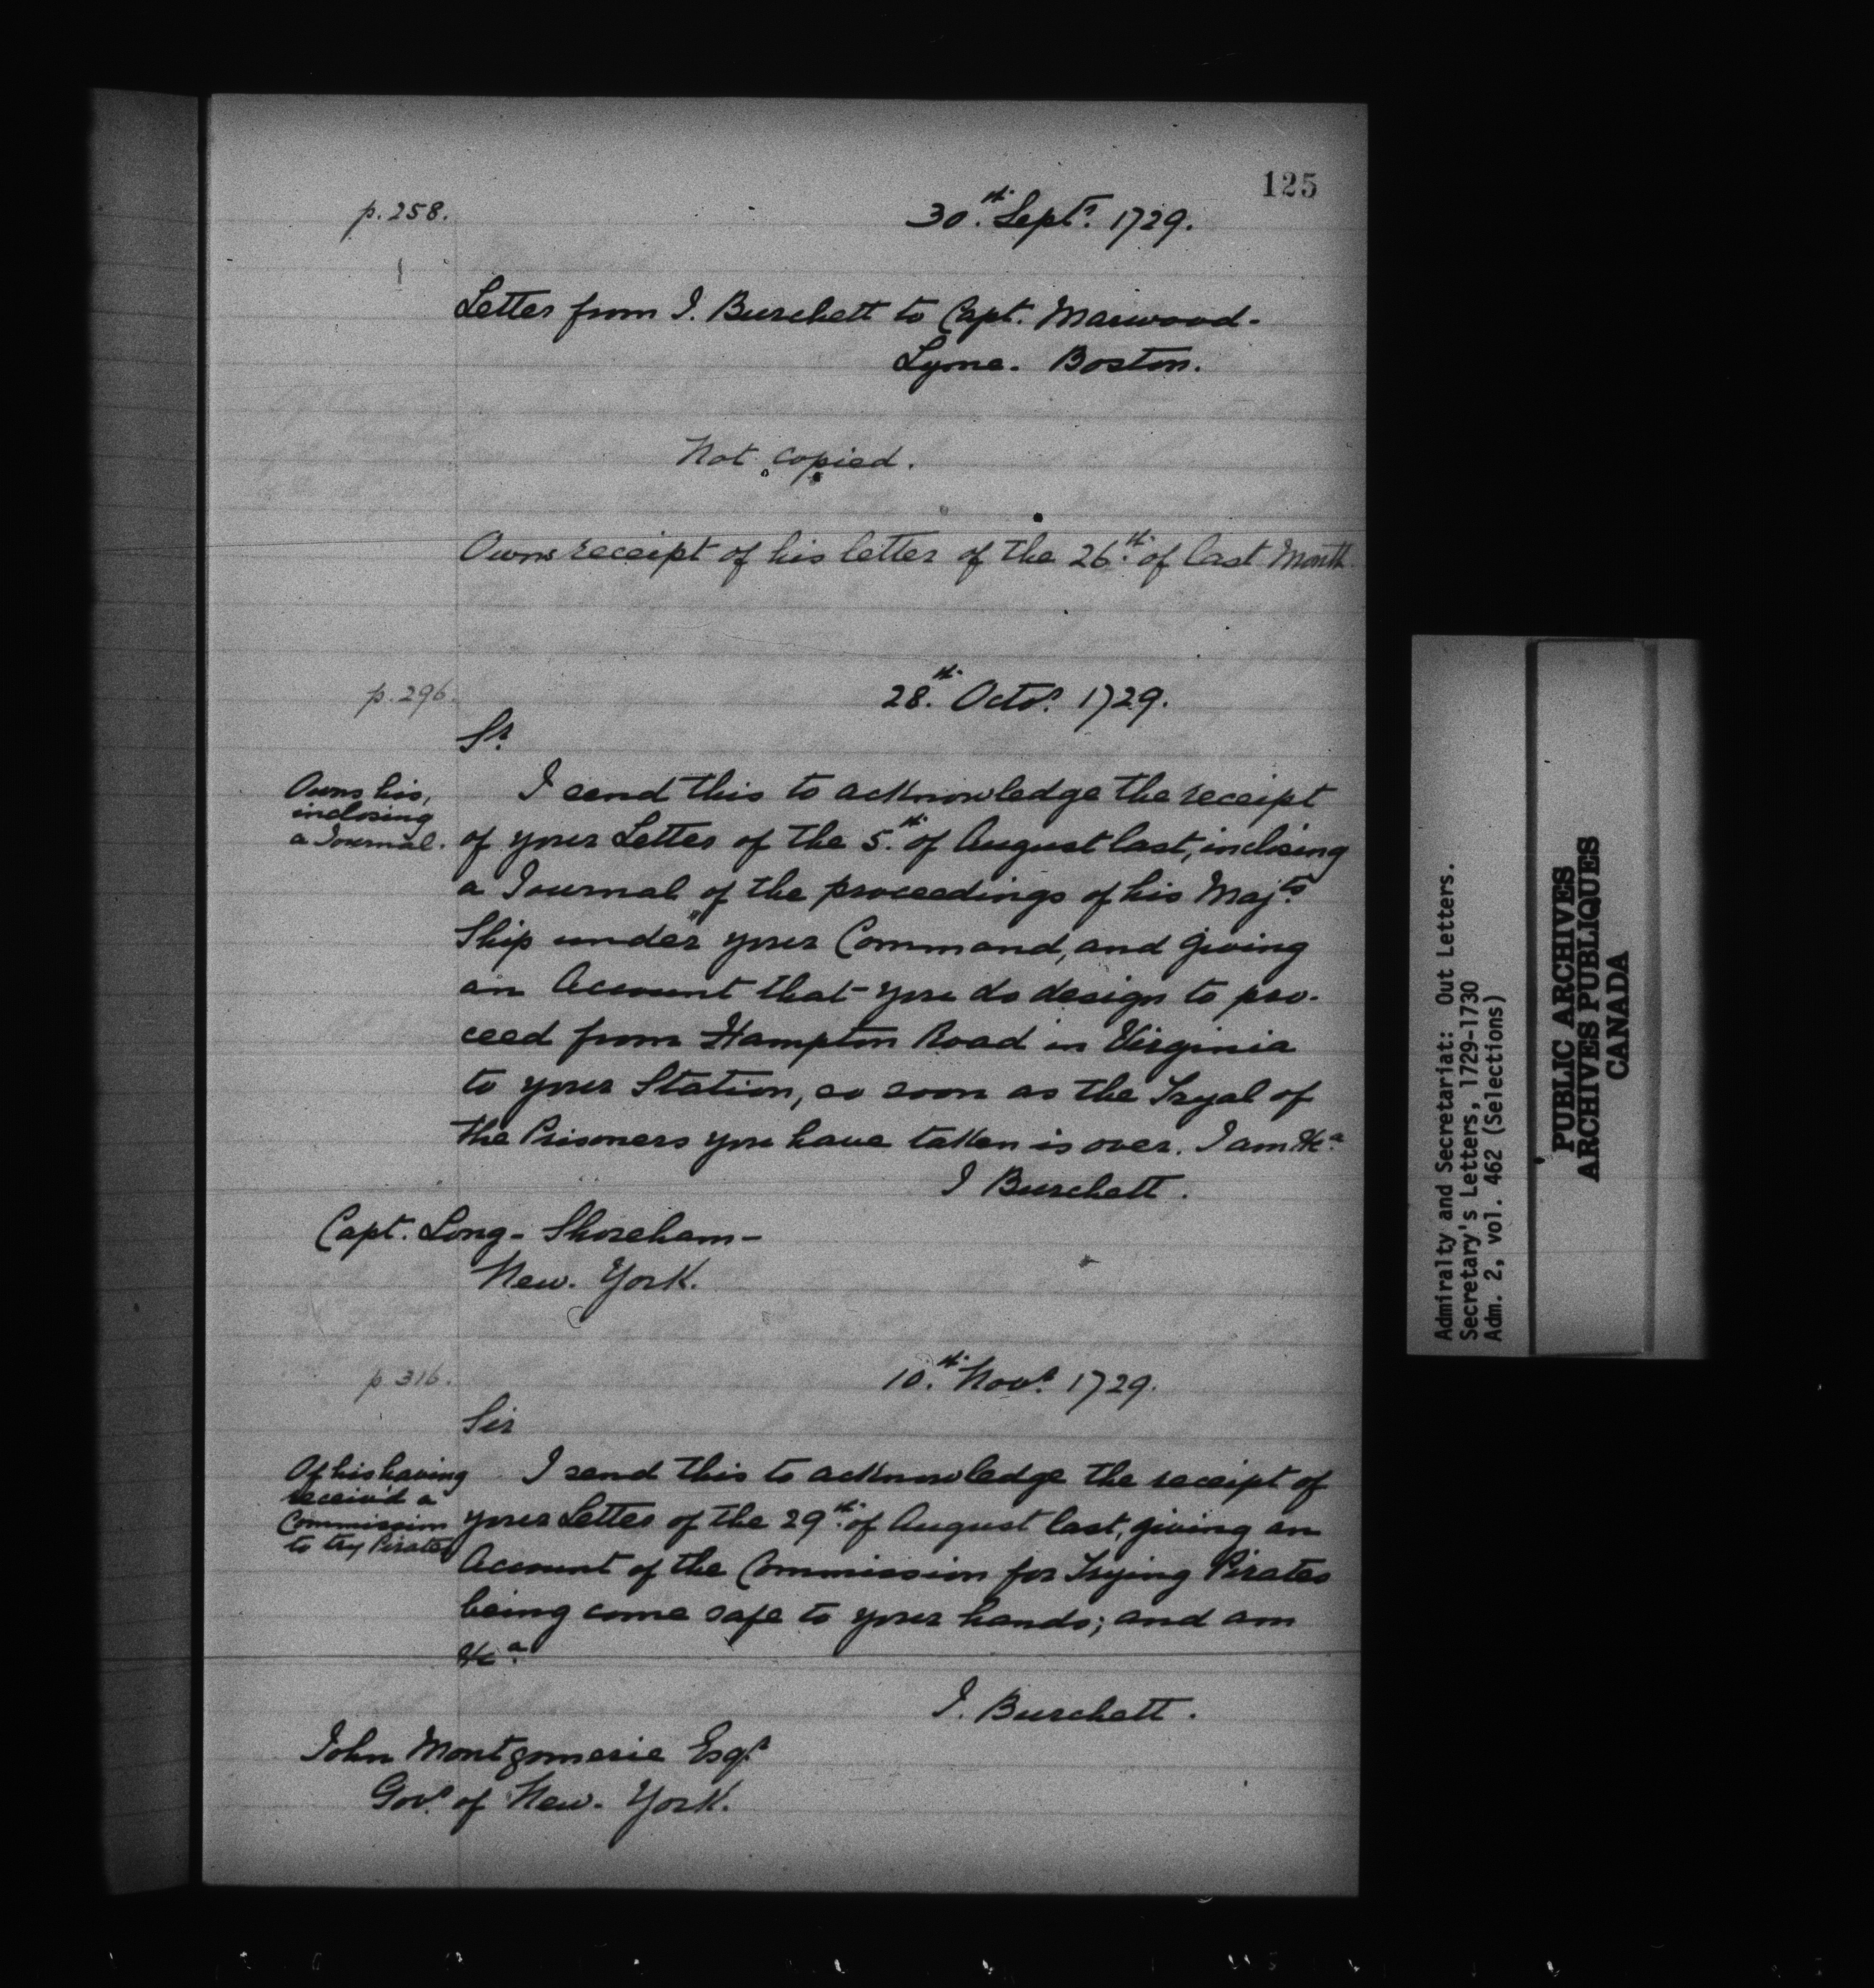 125
p. 258.
30.th Septr. 1729.
Letter from J. Burchett to Capt. Marwood.
Lyme. Boston.
Not copied.
Owns receipt of his letter of the 26th. of last Month
p. 296.
28th. Octor. 1729.
Sr.
Owns his,
inclosing
a Journal.
I send this to acknowledge the receipt
of your Letter of the 5th. of August last, inclosing
a Journal of the proceedings of his Majts.
Ship under your Command, and giving
an Account that you do design to pro-
ceed from Hampton Road in Virginia
to your Station, so soon as the Tryal of
the Prisoners you have taken is over. I am &ca.
J Burchett.
Capt. Long - Shoreham -
New. York.
p 316.
10th. Novr. 1729.
Sir
Of his having
receiv'd a
Commission
to try Pirates
I send this to acknowledge the receipt of
your Letter of the 29th. of August last, giving an
Account of the Commission for Trying Pirates
being come safe to your hands; and am
&ca.
J. Burchett.
John Montgomerie Esqr.
Govr. of New. York.
Admiralty and Secretariat: Out Letters.
Secretary's Letters, 1729-1730
Adm. 2, vol. 462 (Selections)
PUBLIC ARCHIVES
ARCHIVES PUBLIQUES
CANADA